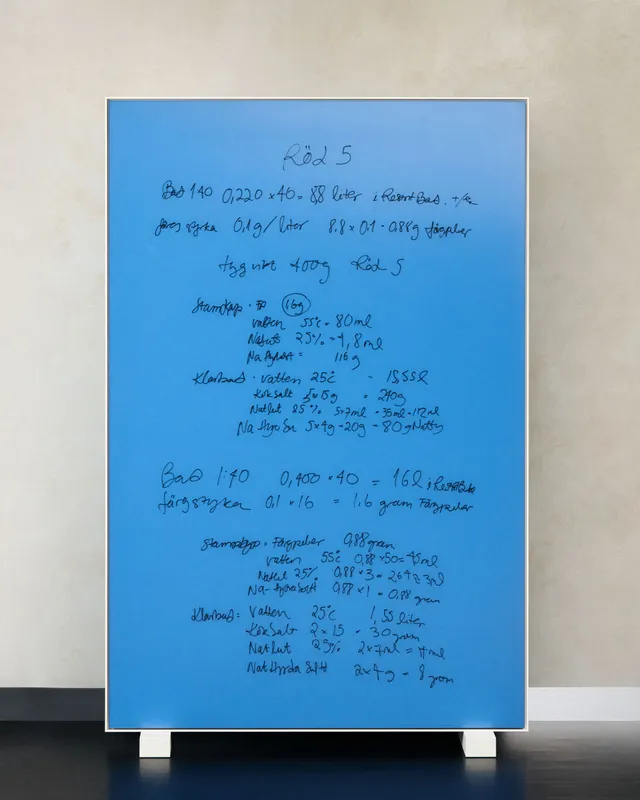 Röd 5
Bad 1:40 0,220 × 40 = 88 liter i Resert Bad. +/-
färg styrka 0,1g/liter 8.8 × 0.1 - 0.88g färgpulver
tyg vikt 400g Röd 5
Stamkyp · FP 1,6g
vatten 55°C - 80ml
Natlut 25% = 4,8ml
Na hydro = 1,6 g
Klarbad · vatten 25°C - 15,55l
Koksalt 5×15g = 240g
Natlut 25% 5×7ml = 35ml - 112ml
Na Hydro 5×4g - 20g - 80g
Bad 1:40 0,400 × 40 = 16l i Resert Bad
färgstyrka 0,1 × 16 = 1,6 gram Färgpulver
Stamkyp = Färgpulver 0,88 gram
vatten 55°C 0,88 × 50 = 45ml
Natlut 25% 0,88 × 3 = 2,64 ≈ 3ml
Na- 0,88 × 1 = 0,88 gram
Klarbad: Vatten 25°C 1,55 liter
Koksalt 2 × 15 - 30 gram
Natlut 25% 2×7ml = ml
Nat 2×4g - 8 gram